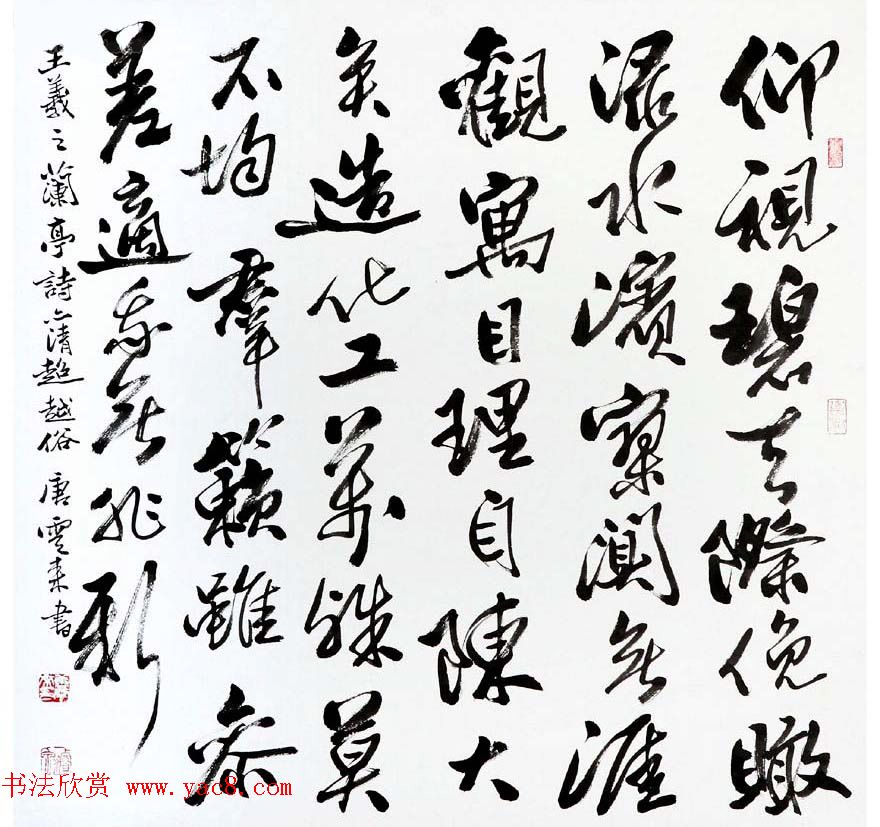 仰視碧天際俛瞰
淥水濱寥闃無涯
觀寓目理自陳大
矣造化工萬殊莫
不均羣籟雖參
差適我無非新
王羲之蘭亭詩清超越俗 唐雲来書
书法欣赏 www.yac8.com